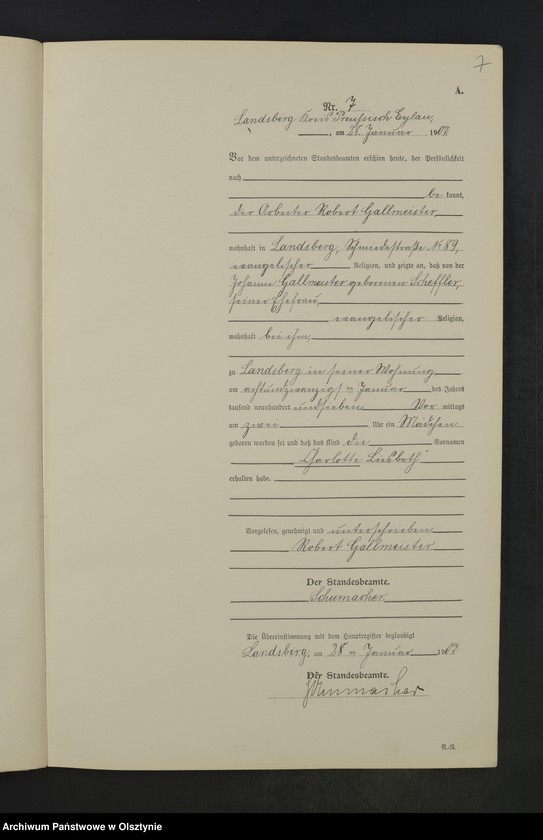 7
A.
Nr. 7
Landsberg Kreis Preußisch Eylau,
, am 28. Januar 1907.
Vor dem unterzeichneten Standesbeamten erschien heute, der Persönlichkeit
nach
be kannt,
der Arbeiter Robert Gallmeister,
wohnhaft in Landsberg, Schmiedestraße N. 89,
evangelischer Religion, und zeigte an, daß von der
Johanne Gallmeister geborenen Scheffler,
seiner Ehefrau,
evangelischer Religion,
wohnhaft bei ihm,
zu Landsberg in seiner Wohnung
am achtundzwanzigsten Januar des Jahres
tausend neunhundert undsieben Vor mittags
um zwei Uhr ein Mädchen
geboren worden sei und daß das Kind die Vornamen
Charlotte Liesbeth
erhalten habe.
Vorgelesen, genehmigt und unterschrieben
Robert Gallmeister
Der Standesbeamte.
Schumacher
Die Übereinstimmung mit dem Hauptregister beglaubigt
Landsberg, am 28 ten Januar 1907.
Der Standesbeamte.
Schumacher
Archiwum Państwowe w Olsztynie